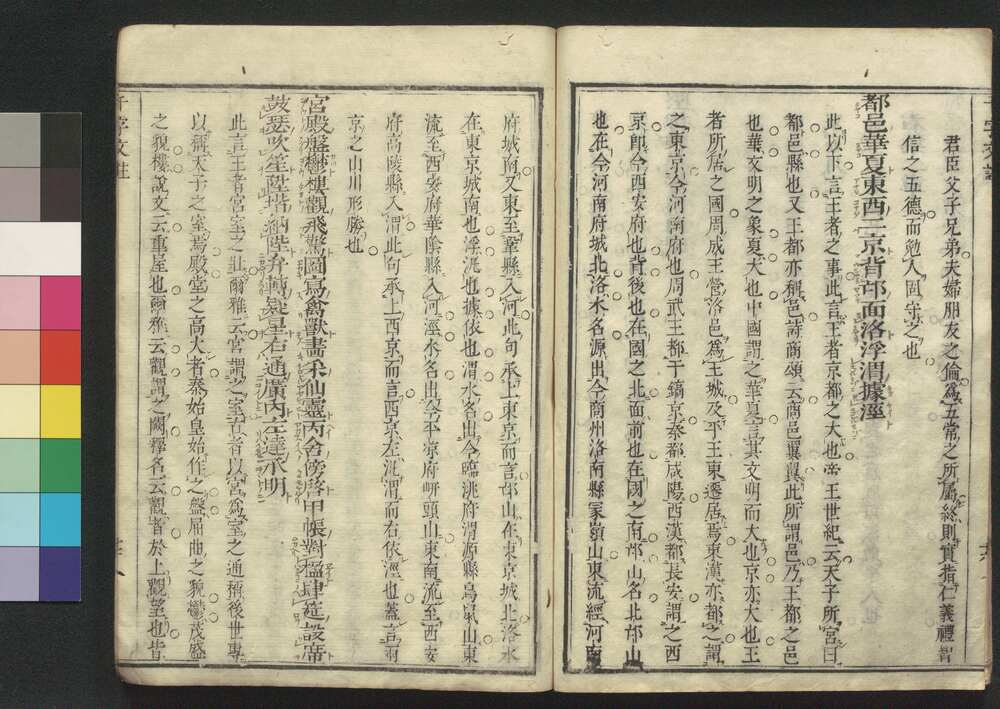 君臣父子兄弟夫婦朋友之倫為五常之所屬終則實指仁義禮智
信之五德而勉人固守之也
都邑華夏東西二京背邙面洛浮渭據涇
此以下言王者之事此言王者京都之大也帝王世紀云天子所宮曰
都邑縣也又王都亦稱邑詩商頌云商邑翼翼此所謂邑乃王都之邑
也華文明之象夏大也中國謂之華夏言其文明而大也京亦大也王
者所居之國周成王營洛邑為王城及平王東遷居焉東漢亦都之謂
之東京今河南府也周武王都于鎬京秦都咸陽西漢都長安謂之西
京即今西安府也背後也在國之北面前也在國之南邙山名北邙山
也在今河南府城北洛水名源出今商州洛南縣冢嶺山東流經河南
府城南又東至鞏縣入河此句承上東京而言邙山在東京城北洛水
在東京城南也浮汎也據依也渭水名出今臨洮府渭源縣鳥鼠山東
流至西安府華陰縣入河涇水名出今平凉府岍頭山東南流至西安
府高陵縣入渭此句承上西京而言西京左汎渭而右依涇也蓋言兩
京之山川形勝也
宮殿盤鬱樓觀飛驚圖寫禽獸畫采仙靈丙舍傍啓甲帳對楹肆筵設席
鼓瑟吹笙陞堦納陛弁轉疑星右通廣內左達承明
此言王者宮室之壯爾雅云宮謂之室古者以宮為室之通稱後世專
以稱天子之室焉殿堂之高大者秦始皇始作之盤屈曲之貌鬱茂盛
之貌樓說文云重屋也爾雅云觀謂之闕釋名云觀者於上觀望也皆
千字文註